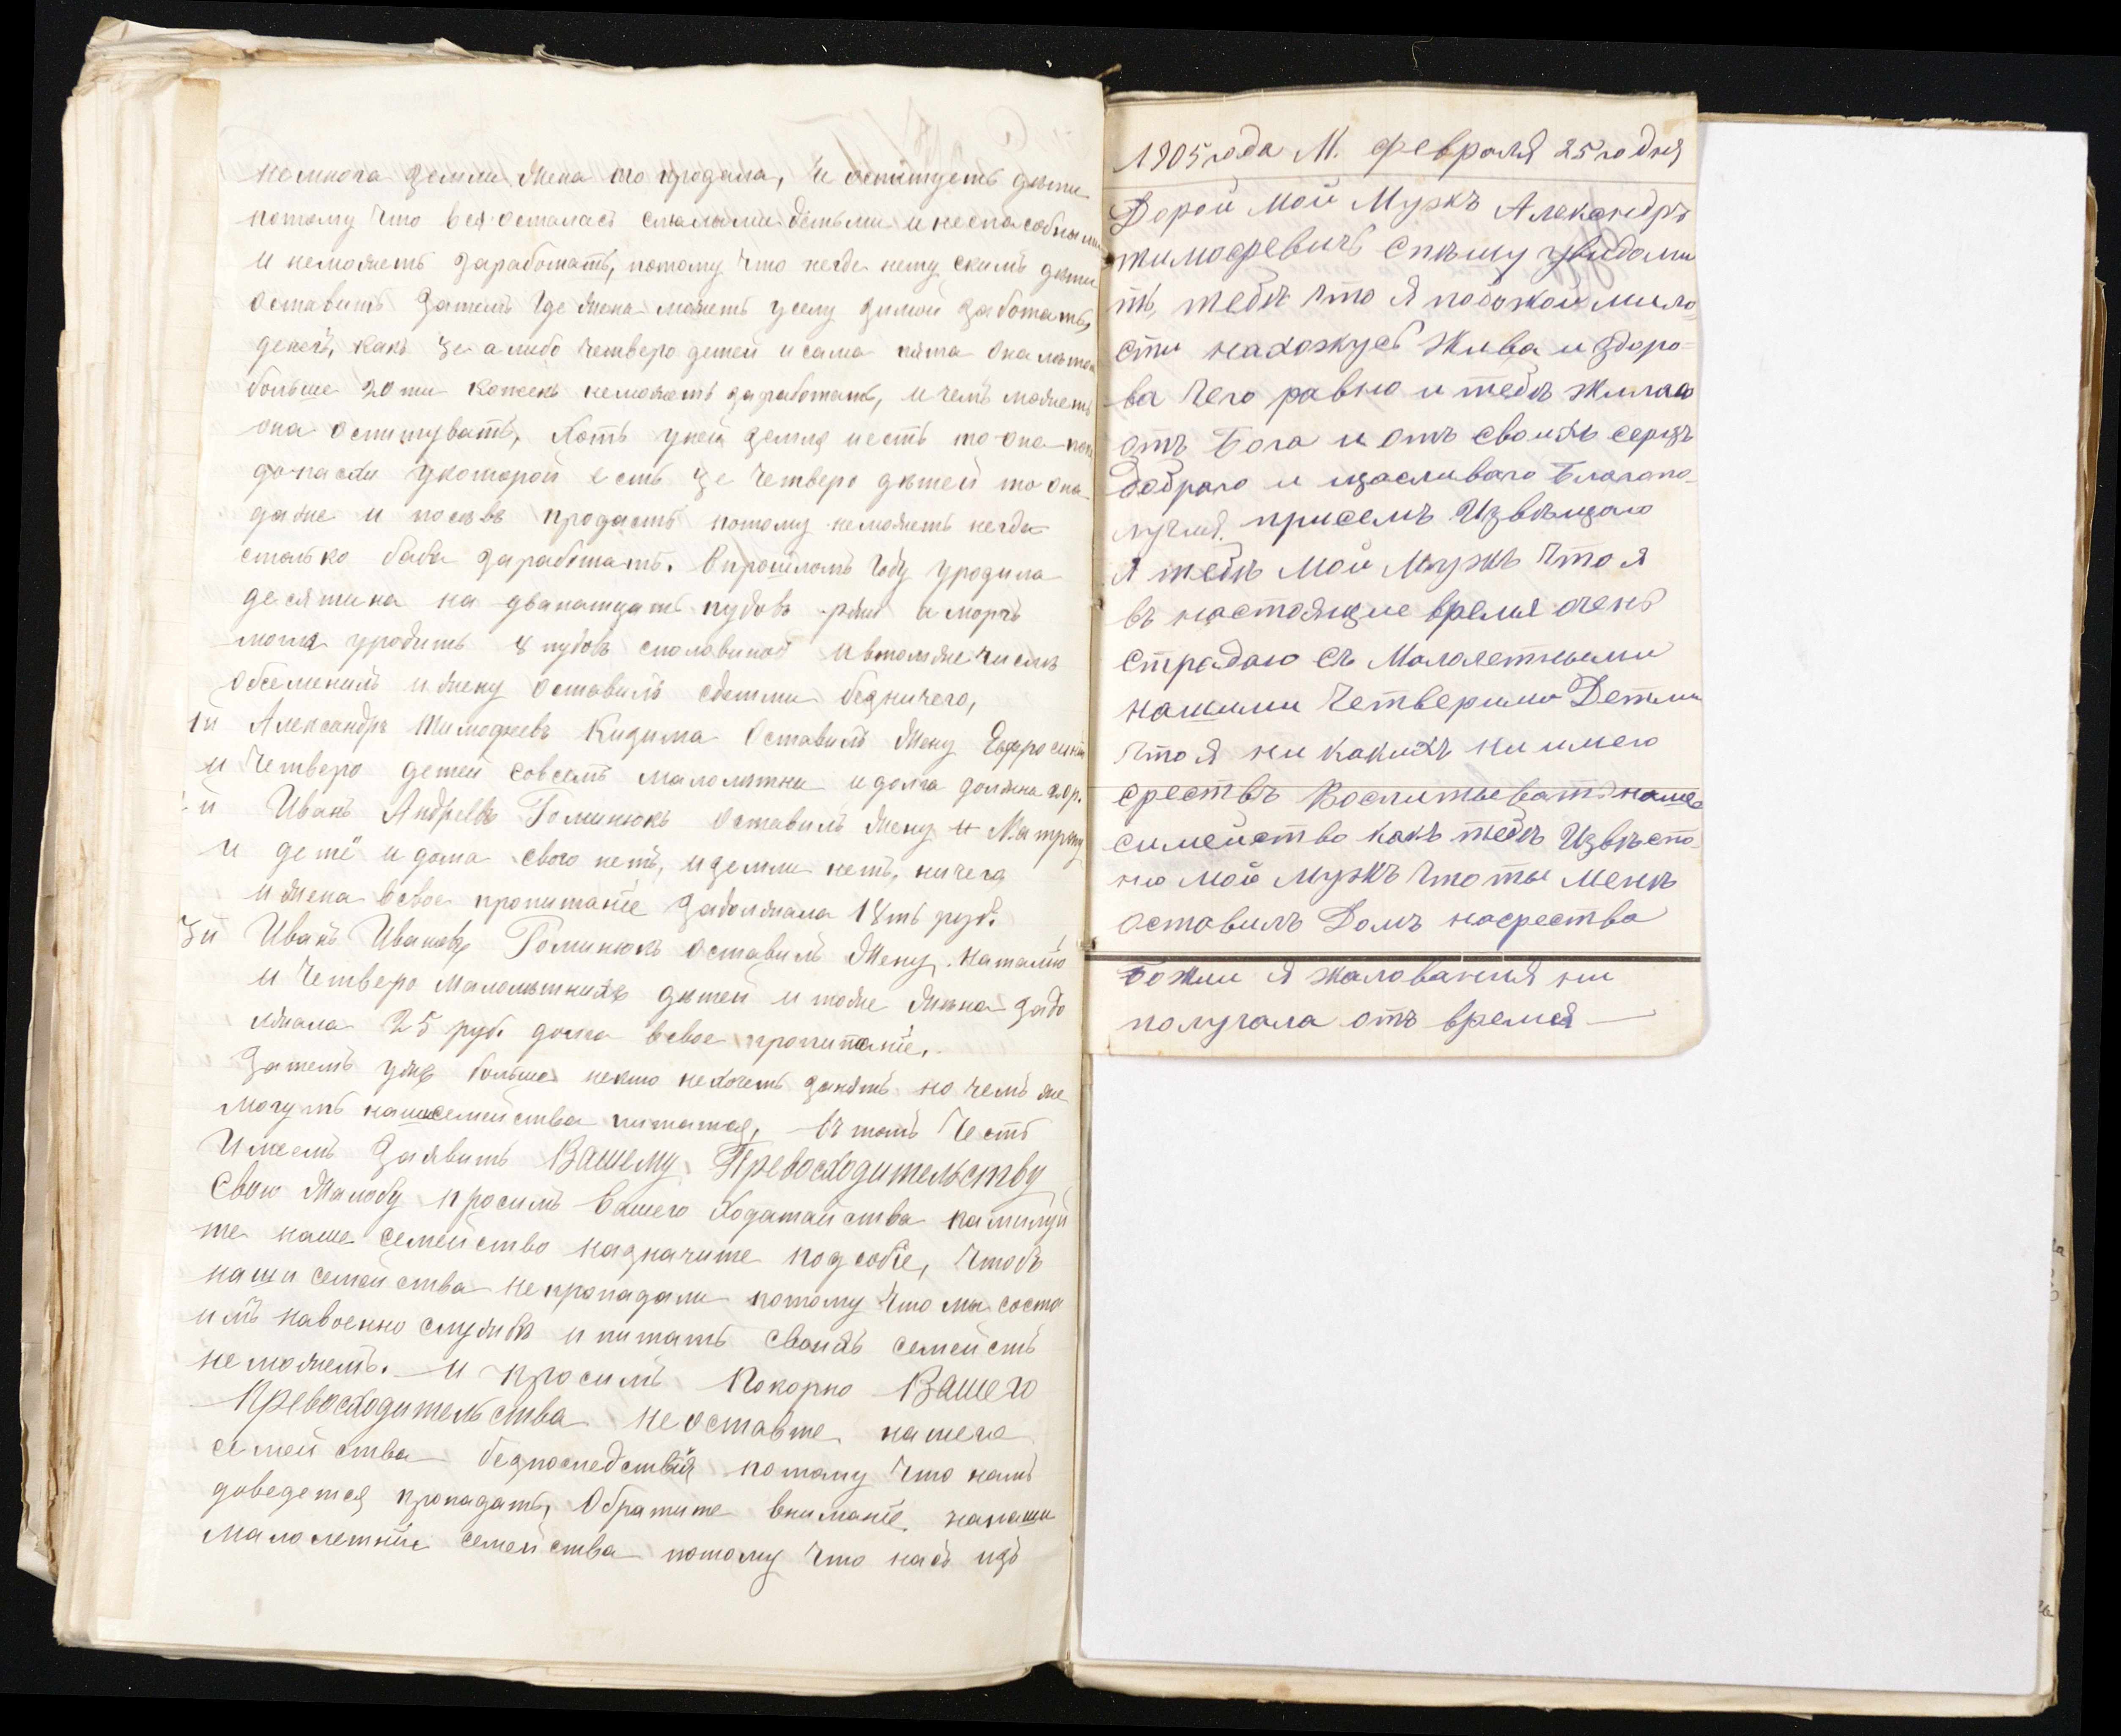 немнога земли жена его продала, и оспитуеть дѣти
потому что вся осталась смалыми детьми и неспасобными
и неможеть заработать, потому что негде нету скимъ дѣти
оставить затемъ где жена можеть усему зимой заботать,
денегъ, какъ же а либо четверо детей и сама пята она
больше 20 ти копекъ неможеть заработать, и чемъ можеть
она оспитувать, Хоть уней земля иесть то она
укоторой есть же четверо дѣтей то она
даже и посевъ продасть потому неможеть негде
столько баба заработать. Впрошломъ году уродила
десятина на дванатцать пудовъ ржи а моргъ
могла уродить 8 пудовъ споловиной ивтомже числѣ
обсеменилъ и жену оставилъ сдетми безничего,
1й Александръ Тимофеевъ Кизима Оставилъ Жену Ефросинію
и Четверо детей совсемъ малолѣтни и долга должна
й Иванъ Андреевъ Гоминюкъ Оставилъ жену и Матрону
и детей и дома свого нетъ, изелми нетъ, ничего
ижена всвое пропитаніе задолжала 18ть руб.
3й Иванъ Ивановъ Гоминюкъ оставилъ Жену Наталію
и Четверо малолѣтнихъ дѣтей и тоже жена задо
лжала 25 руб. долга всвое пропитаніе.
Затемъ уже больше некто нехочеть занять но чемъ же
могуть нашисемейства питатся, Въ томъ Честь
Имеемъ Заявить Вашему Превосходительству
Свою жалобу просимъ Вашего Ходатайства памилуй
те наше семейство назначите подсобіе, чтобъ
наши семейства непропадали потому что мы состо
имъ навоенно службѣ и питать своихъ семействъ
не можемъ. и просимъ Покорно Вашего
Превосходительства не оставте нашего
семейства безпоследствія потому что намъ
доведется пропадать, Обратите вниманіе нанаши
Малолетнии семейства потому что насъ изъ
1905 года М. февроля 25 го дня
Дорой мой Мужъ Александръ
тимофревичъ спѣшу увидоми
ть, тебѣ что Я побожой мило
сти нахожусь Жива и здоро-
ва чего равно и тебѣ Жилаю
отъ Бога и отъ своихъ серцъ
добраго и щасливаго Благопо-
лучия. присемъ Извѣщаю
Я тебѣ мой Мужъ что я
въ настоящие время очень
страдаю съ Малолетныеми
нашими Четверыми Детми
что я ни какихъ ни имею
срествъ Воспитывать наше
симейство какъ тебѣ Извѣсто-
но мой мужъ что ты Менѣ
оставилъ Домъ насрества
Божии Я жалования ни
получала отъ время —